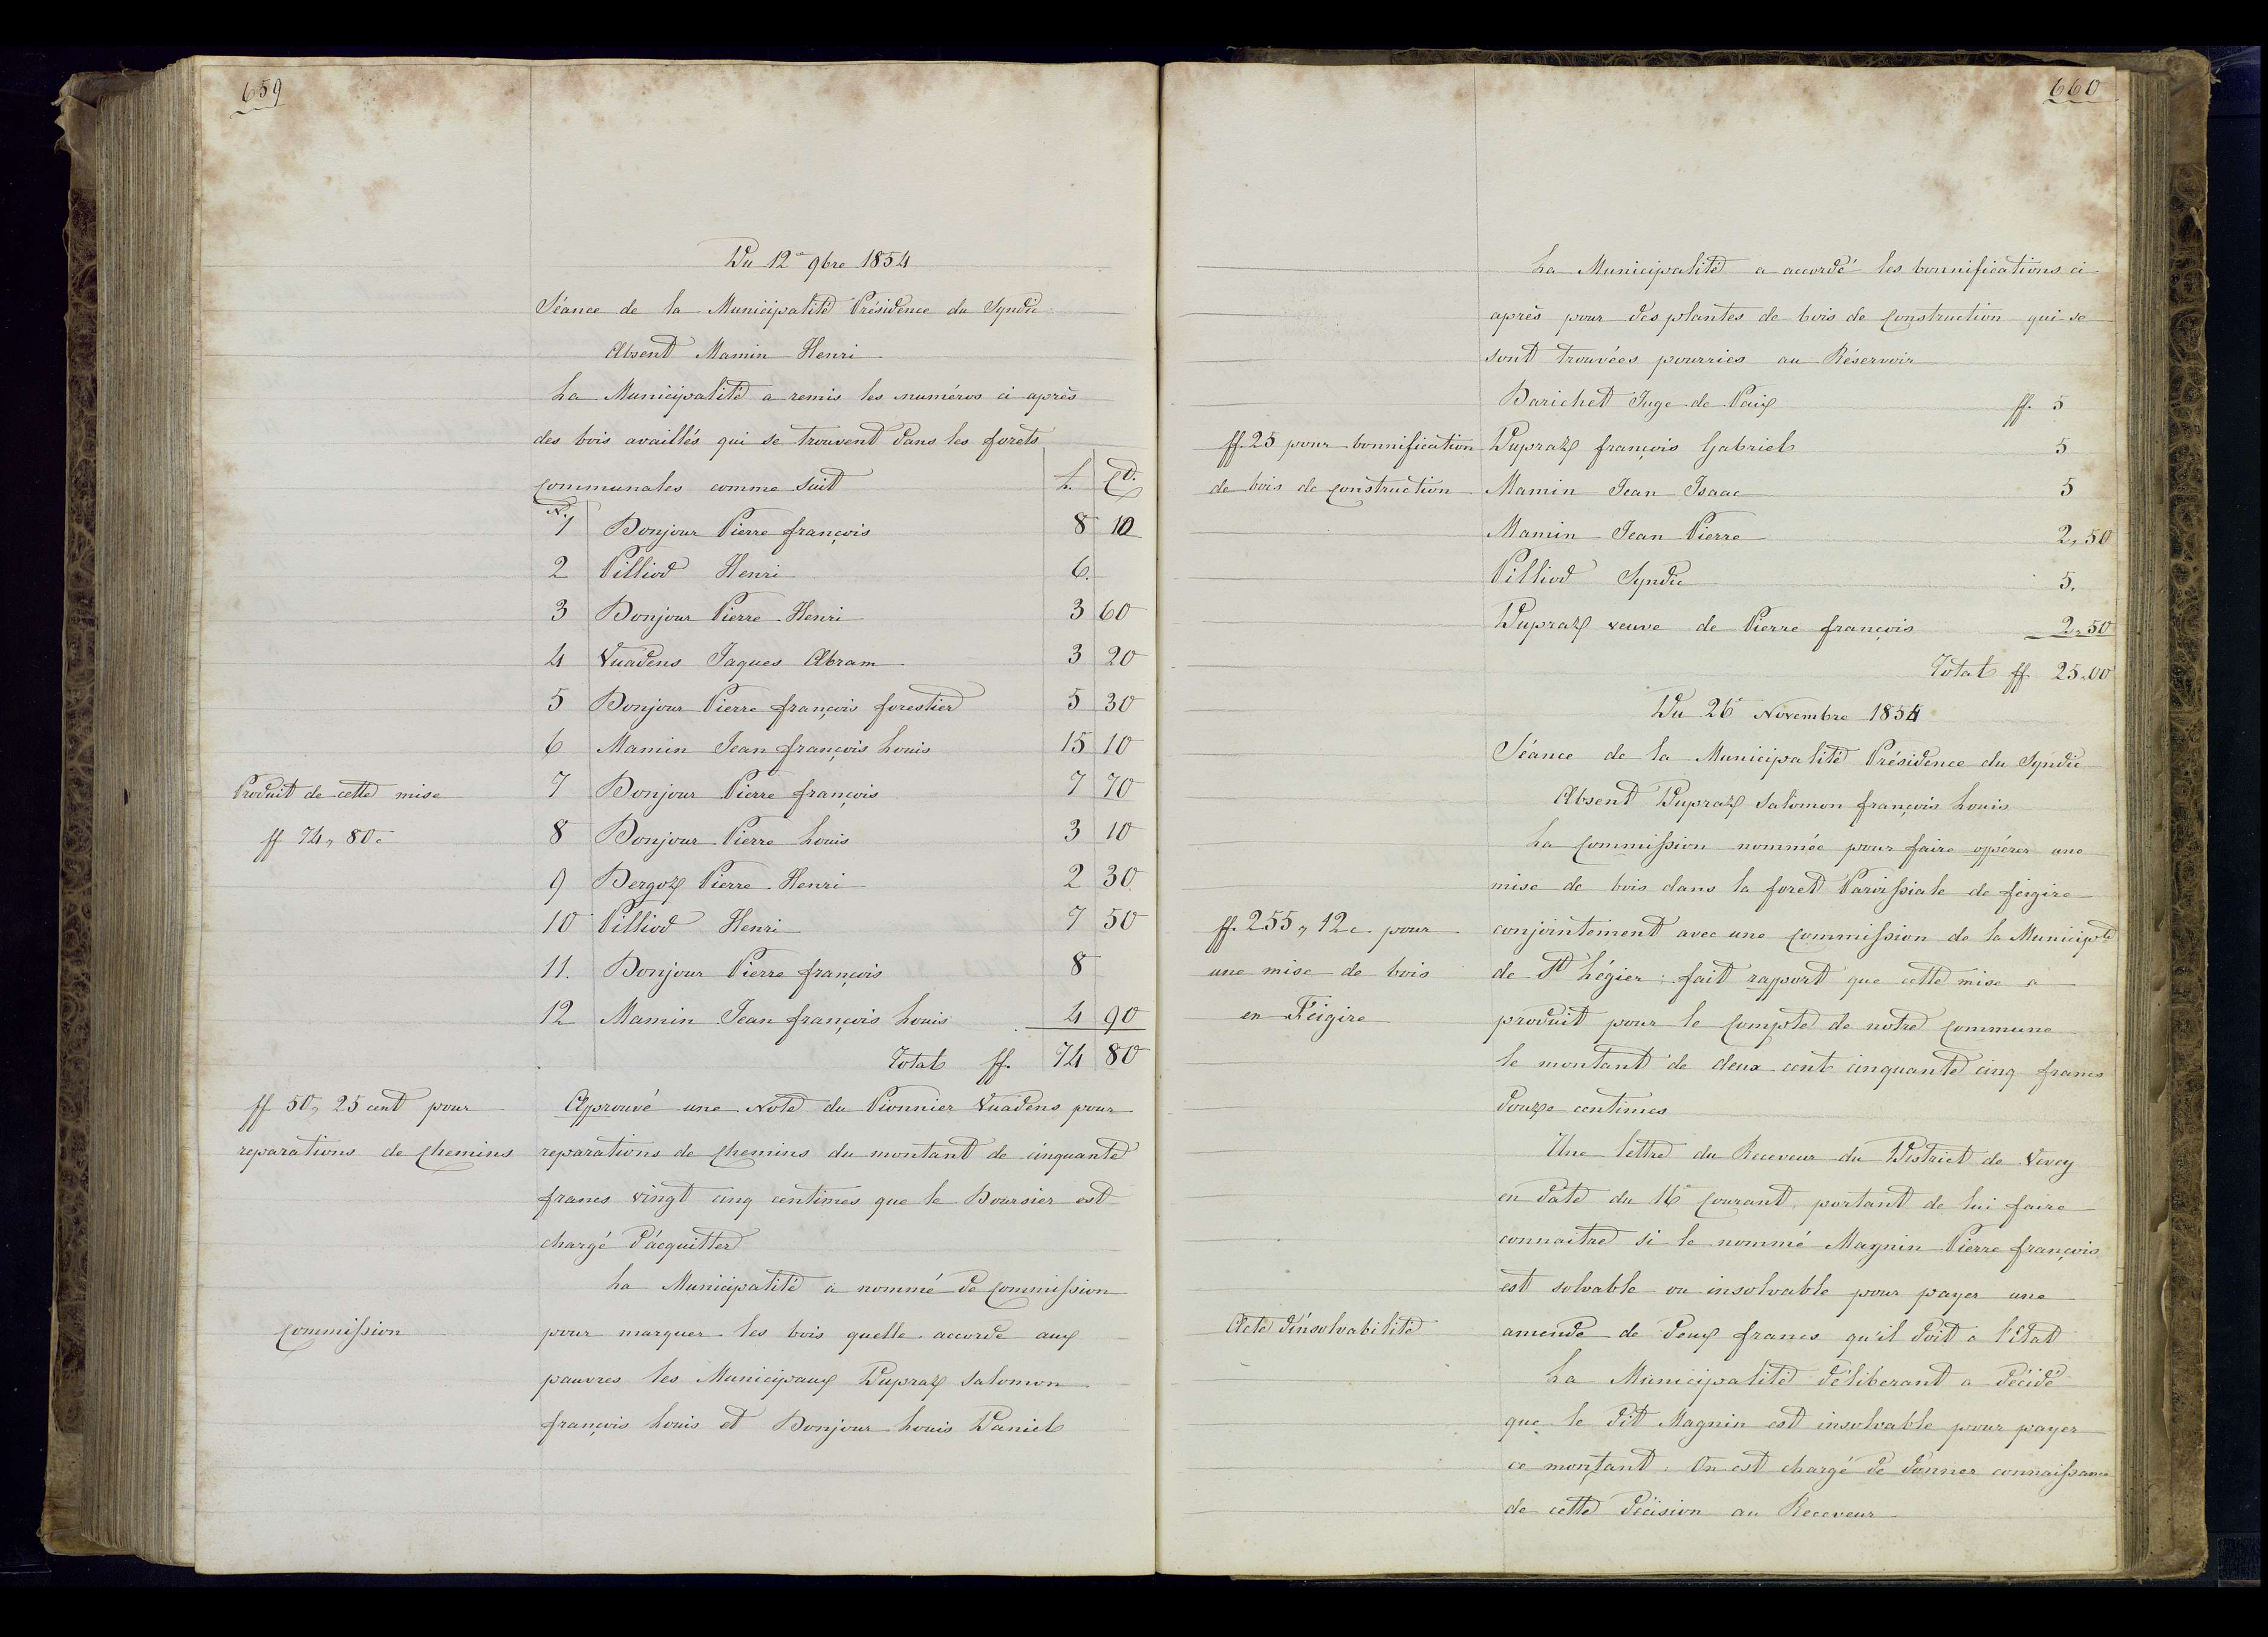 659
Du 12e 9bre 1854
Séance de la Municipalité Présidence du Syndic
Absent Mamin Henri
La Municipalité a remis les numéros ci après
des bois availlés qui se trouvent dans les forets
communales comme suit L. Ct.
N. 1 Bonjour Pierre françois 8 10
2 Pilliod Henri 6.
3 Bonjour Pierre Henri 3 60
4 Vuadens Jaques Abram 3 20
5 Bonjour Pierre françois forestier 5 30
6 Mamin Jean françois Louis 15 10
Produit de cette mise
ff 74, 80c
7 Bonjour Pierre françois 7 70
8 Bonjour Pierre Louis 3 10
9 Bergoz Pierre Henri 2 30
10 Pilliod Henri 7 50
11. Bonjour Pierre françois 8
12 Mamin Jean françois Louis 4 90
Total ff. 74 80
ff 50, 25 cent pour
reparations de chemins
Aprouvé une Note du Pionnier Vuadens pour
reparations de chemins du montant de cinquante
francs vingt cinq centimes que le Boursier est
chargé d'acquitter
La Municipalité a nommé de commission
commission
pour marquer les bois quelle accorde aux
pauvres les Municipaux Dupraz Salomon
françois Louis et Bonjour Louis Daniel
660
La Municipalité a accordé les bonnifications ci
après pour des plantes de bois de construction qui se
sont trouvées pourries au Réservoir
Barichet Juge de Paix ff. 5
ff. 25 pour bonnification
de bois de construction
Dupraz françois Gabriel 5
Mamin Jean Isaac 5
Mamin Jean Pierre 2,50
Pilliod Syndic 5.
Dupraz veuve de Pierre françois 2,50
Total ff. 25.00
Du 26e Novembre 1854
Séance de la Municipalité Présidence du Syndic
Absent Dupraz Salomon françois Louis
La commission nommée pour faire oppérer une
mise de bois dans la foret Paroissiale de feigire
ff. 255, 12c pour
une mise de bois
en Feigire
conjointement avec une commission de la Municipté
de St Légier; fait rapport que cette mise a
produit pour le compte de notre commune
le montant de deux cent cinquante cinq francs
douze centimes
Une lettre du Receveur du District de Vevey
en date du 16e courant, portant de lui faire
connaitre si le nommé Magnin Pierre françois
est solvable ou insolvable pour payer une
Acte d'insolvabilité
amende de deux francs qu'il doit a l'état
La Municipalité déliberant a décidé
que le dit Magnin est insolvable pour payer
ce montant. On est chargé de donner connaissance
de cette décision au Receveur